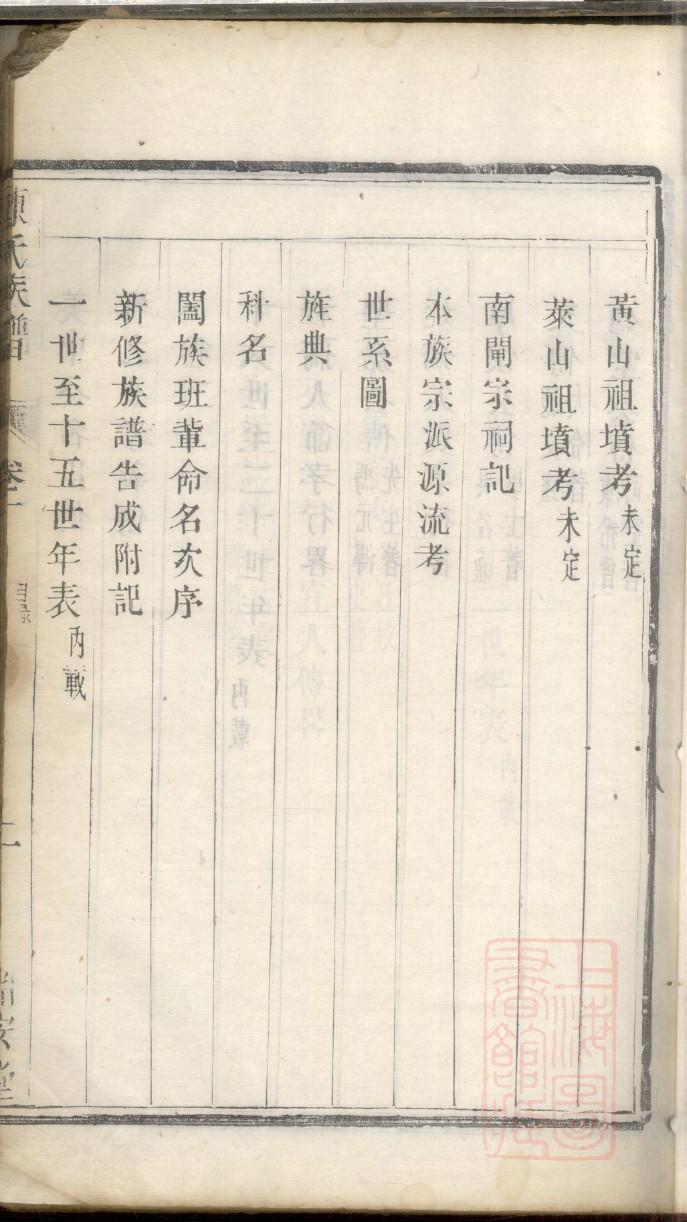 黄山祖墳考未定
萊山祖墳考未定
南閘宗祠記
本族宗派源流考
世系圖
旌典
科名
闔族班輩命名次序
新修族譜告成附記
一世至十五世年表内載
陳氏族譜
卷一
目录
二
上海圖書館藏